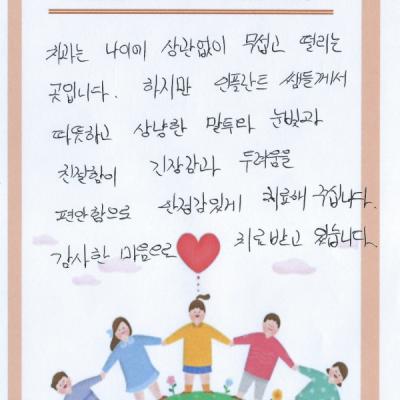 치과는 나이에 상관없이 무섭고 떨리는
곳입니다. 하지만 인플란트 쌤들께서
따뜻하고 상냥한 말투와 눈빛과
친절함이 긴장감과 두려움을
편안함으로 안정감있게 치료해 주십니다.
감사한 마음으로 치료받고 있습니다.